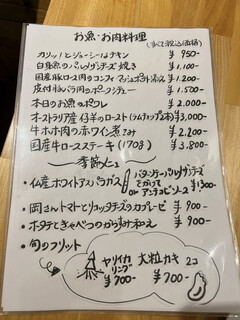 お魚・お肉料理
(すべて税込価格)
カリッとジューシーはチキン ¥950-
白身魚のパルメザンチーズ焼き ¥1,100-
国産豚ロース肉のコンフィ マッシュポテト添え ¥1,200-
皮付豚バラ肉のポークシチュー ¥1,500-
本日のお魚のポワレ ¥2,000-
オーストラリア産 仔羊のロースト(ラムチョップ2本) ¥3,000-
牛ホホ肉の赤ワイン煮込み ¥2,200-
国産牛ロースステーキ(170g) ¥3,800-
季節メニュー
・仏産ホワイトアスパラガス
バターソースパルメザンチーズ
or アンチョビソース ¥1300-
・岡さんトマトとリコッタチーズのカプレーゼ ¥900-
・ホタテときゃべつのからすみ和え ¥900-
・旬のフリット
ヤリイカ 大粒カキ 2コ
リング
¥700- ¥700-